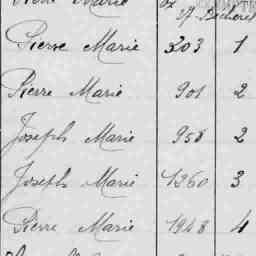 Pierre Marie 303 1
Pierre Marie 901 2
Joseph Marie 958 2
Joseph Marie 1260 3
Pierre Marie 1948 4